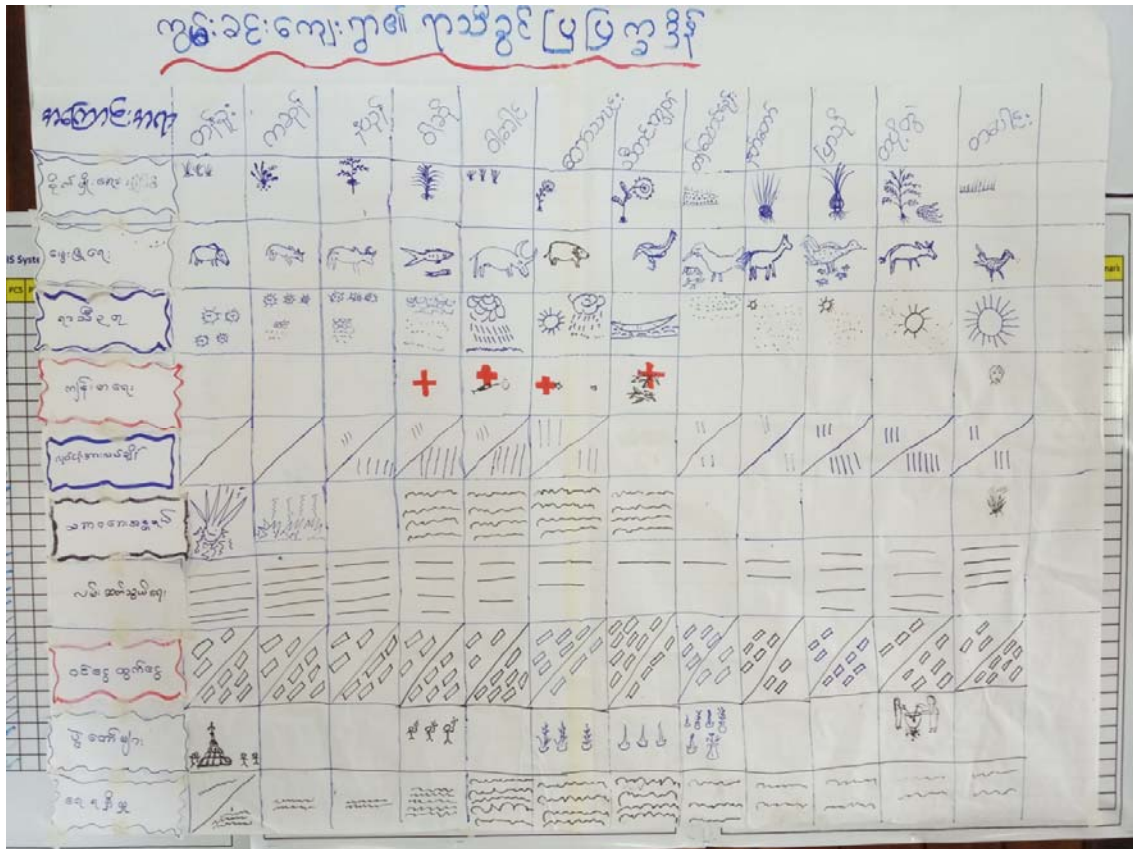 ကွမ်းခင်းကျေးရွာ၏ ရာသီခွင်ပြပြက္ခဒိန်
အကြောင်းအရာ
တန်ခူး
ကဆုန်
နယုန်
ဝါဆို
ဝါခေါင်
တော်သလင်း
သီတင်းကျွတ်
တန်ဆောင်မုန်း
နတ်တော်
ပြာသို
တပို့တွဲ
တပေါင်း
စိုက်ပျိုးရေး
မွေးမြူရေး
ရာသီဥတု
ကျန်းမာရေး
သဘာဝဘေးအန္တရာယ်
လမ်းဆက်သွယ်ရေး
ဝင်ငွေ ထွက်ငွေ
ပွဲတော်များ
ရေရရှိမှု
PCS